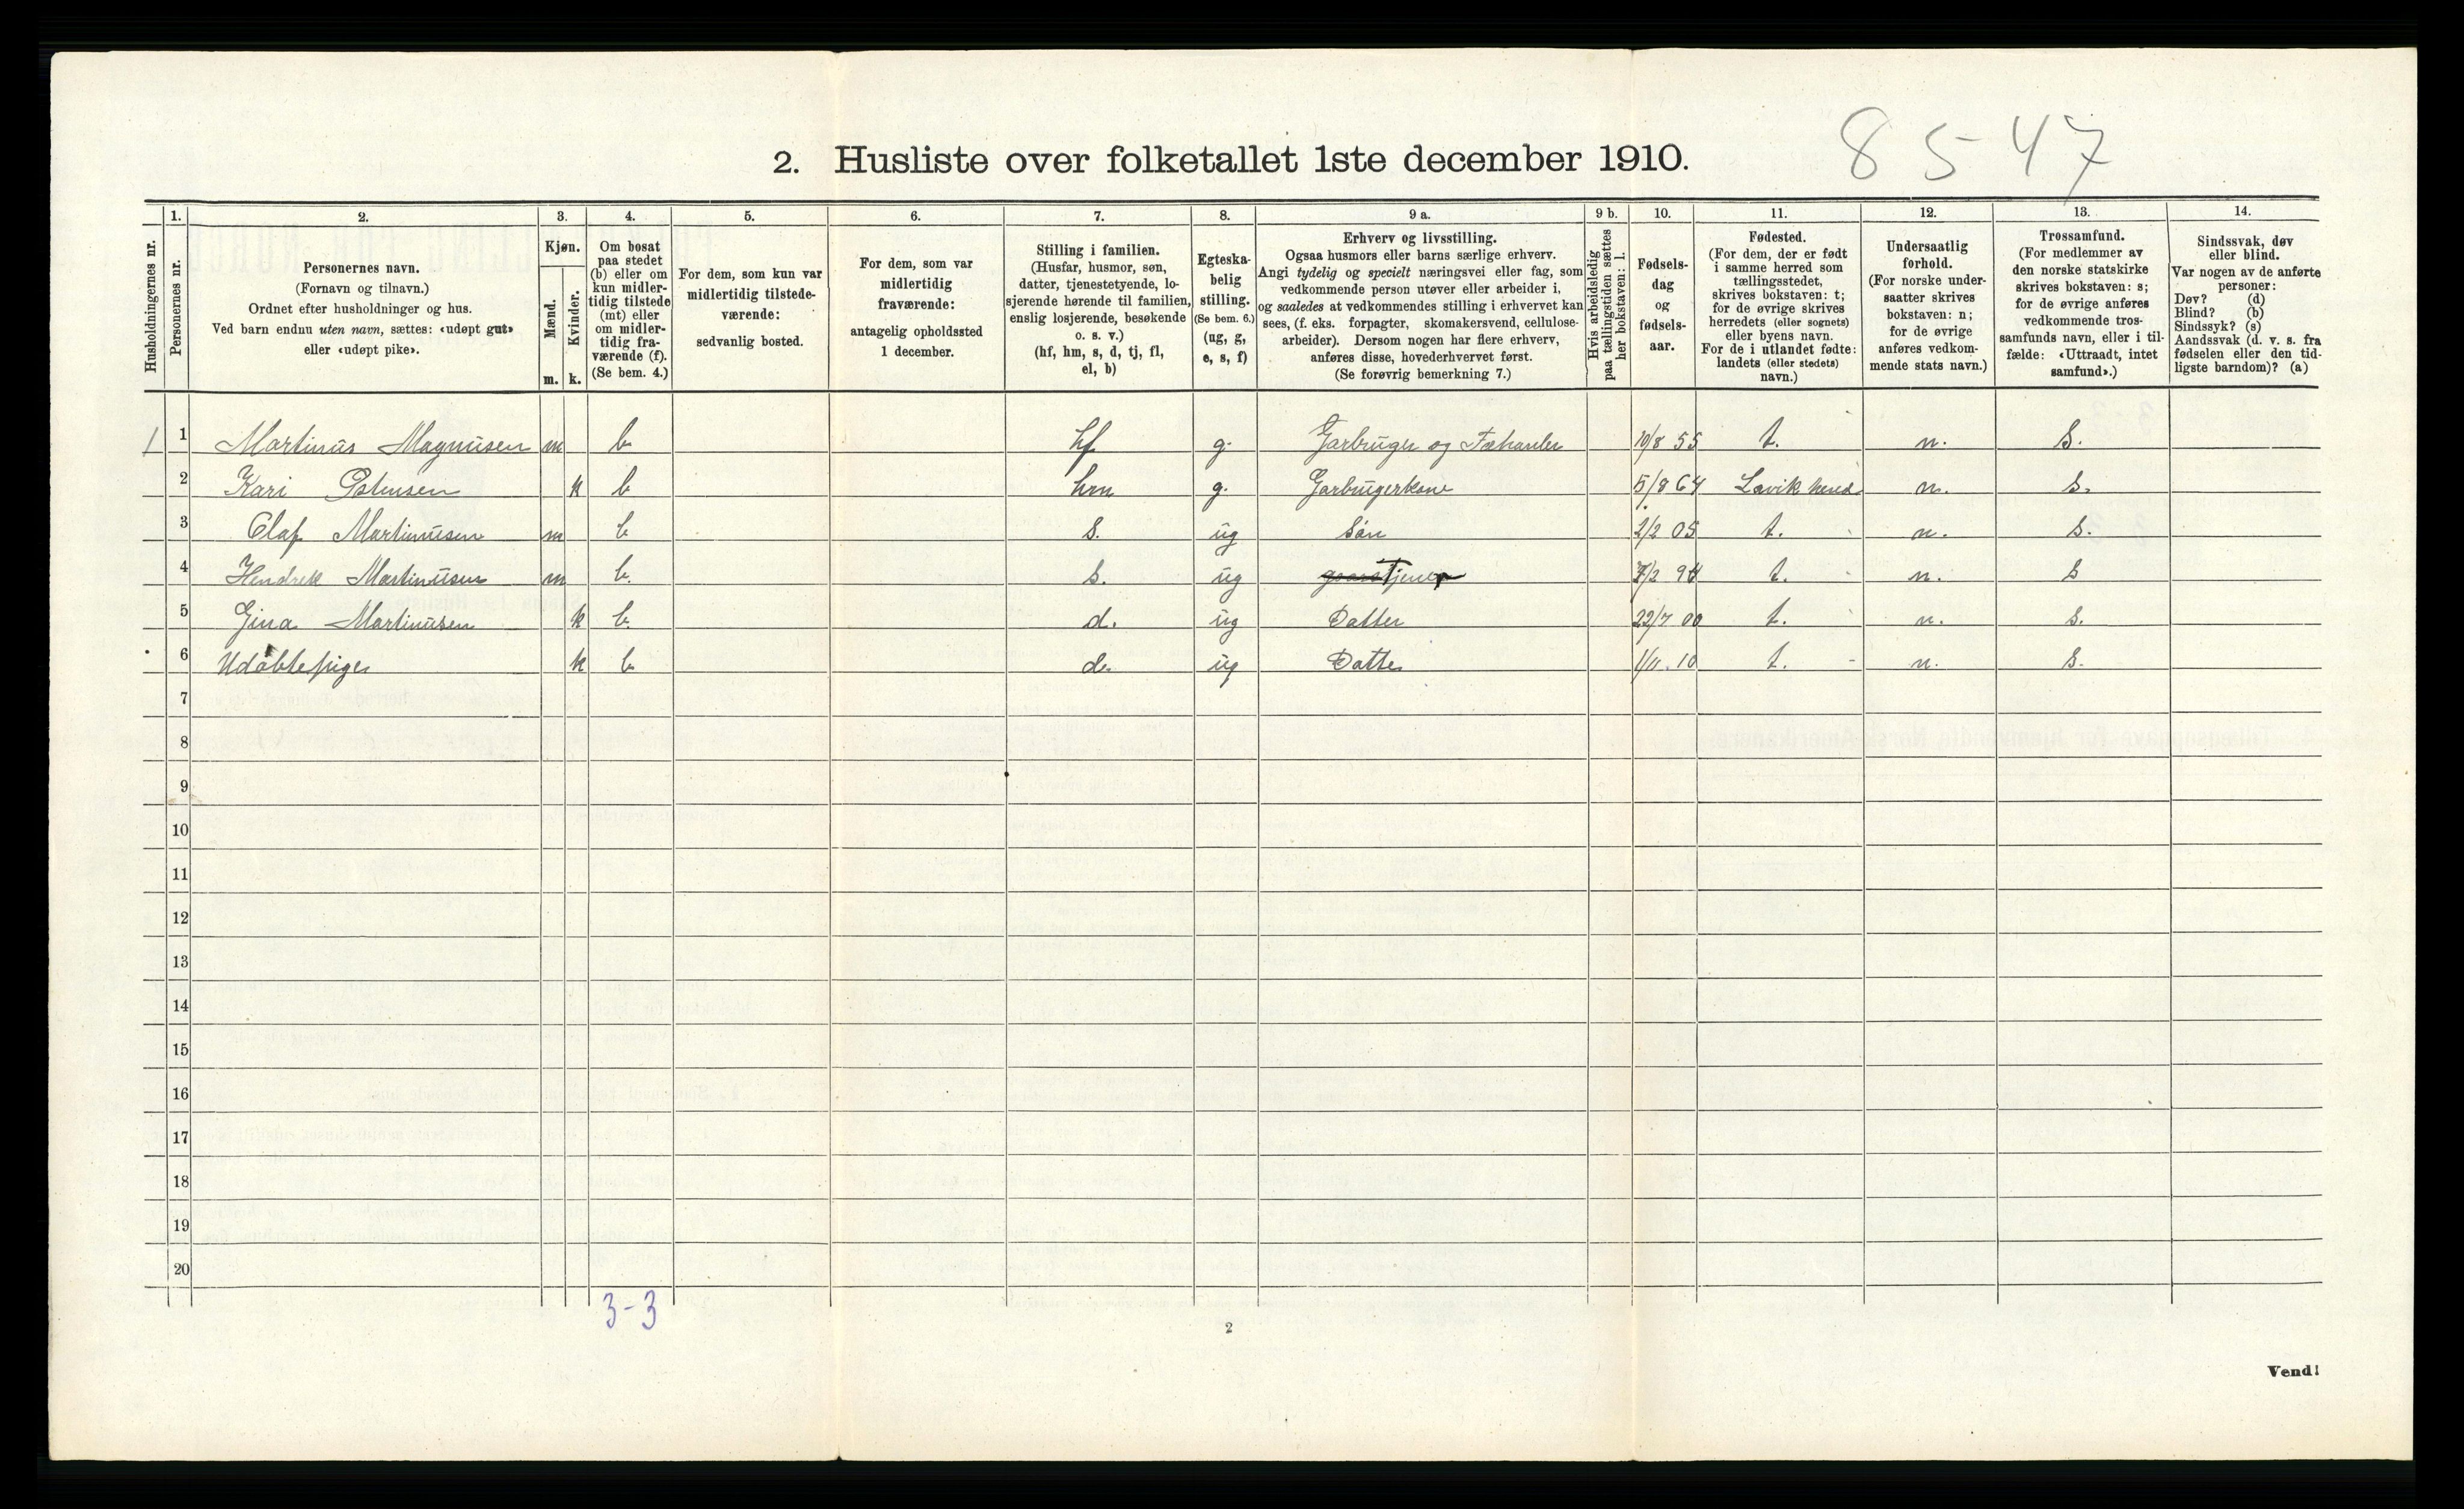 8547
2. Husliste over folketallet 1ste december 1910.
Husholdningernes nr.
1.
Personernes nr.
2.
Personernes navn.
(Fornavn og tilnavn.)
Ordnet efter husholdninger og hus.
Ved barn endnu uten navn, sættes: «udøpt gut»
eller «udøpt pike».
3.
Kjøn.
Mænd.
Kvinder.
m. k.
4.
Om bosat
paa stedet
(b) eller om
kun midler-
tidig tilstede
(mt) eller
om midler-
tidig fra-
værende (f).
(Se bem. 4.)
5.
For dem, som kun var
midlertidig tilstede-
værende:
sedvanlig bosted.
6.
For dem, som var
midlertidig
fraværende:
antagelig opholdssted
1 december.
7.
Stilling i familien.
(Husfar, husmor, søn,
datter, tjenestetyende, lo-
sjerende hørende til familien,
enslig losjerende, besøkende
o. s. v.)
(hf, hm, s, d, tj, fl,
el, b)
8.
Egteska-
belig
stilling.
(Se bem. 6.)
(ug, g,
e, s, f)
9 a.
Erhverv og livsstilling.
Ogsaa husmors eller barns særlige erhverv.
Angi tydelig og specielt næringsvei eller fag, som
vedkommende person utøver eller arbeider i,
og saaledes at vedkommendes stilling i erhvervet kan
sees, (f. eks. forpagter, skomakersvend, cellulose-
arbeider). Dersom nogen har flere erhverv,
anføres disse, hovederhvervet først.
(Se forøvrig bemerkning 7.)
9 b.
Hvis arbeidsledig
paa tællingstiden sættes
her bokstaven: l.
10.
Fødsels-
dag
og
fødsels-
aar.
11.
Fødested.
(For dem, der er født
i samme herred som
tællingsstedet,
skrives bokstaven: t;
for de øvrige skrives
herredets (eller sognets)
eller byens navn.
For de i utlandet fødte:
landets (eller stedets)
navn.)
12.
Undersaatlig
forhold.
(For norske under-
saatter skrives
bokstaven: n;
for de øvrige
anføres vedkom-
mende stats navn.)
13.
Trossamfund.
(For medlemmer av
den norske statskirke
skrives bokstaven: s;
for de øvrige anføres
vedkommende tros-
samfunds navn, eller i til-
fælde: «Uttraadt, intet
samfund».)
14.
Sindssvak, døv
eller blind.
Var nogen av de anførte
personer:
Døv? (d)
Blind? (b)
Sindssyk? (s)
Aandssvak (d. v. s. fra
fødselen eller den tid-
ligste barndom)? (a)
1 1 Martinus Magnusen m b hf g. Garbruger og 10/8 55 t. n. s.
2 Kari k b hm g. Garbrugerkone 5/8 64 Lavik herred n. s.
3 Olaf Martinusen m b s. ug Søn 2/2 05 t. n. s.
4 Hendrik Martinusen m b. s. ug 7/2 94 t. n. s
5 Gina Martinusen k b. d. ug Datter 22/7 00 t. n. s.
6 Udøbtepige k b d. ug Datter 1/11. 10 t. n. s.
7
8
9
10
11
12
13
14
15
16
17
18
19
20
3-3
2
Vend!